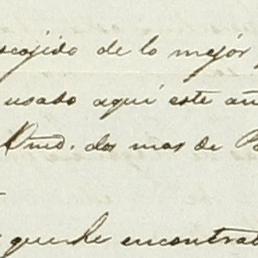 scojido de lo mejór
usado aquí este añ
Vmd. dos mas de
que he encontra